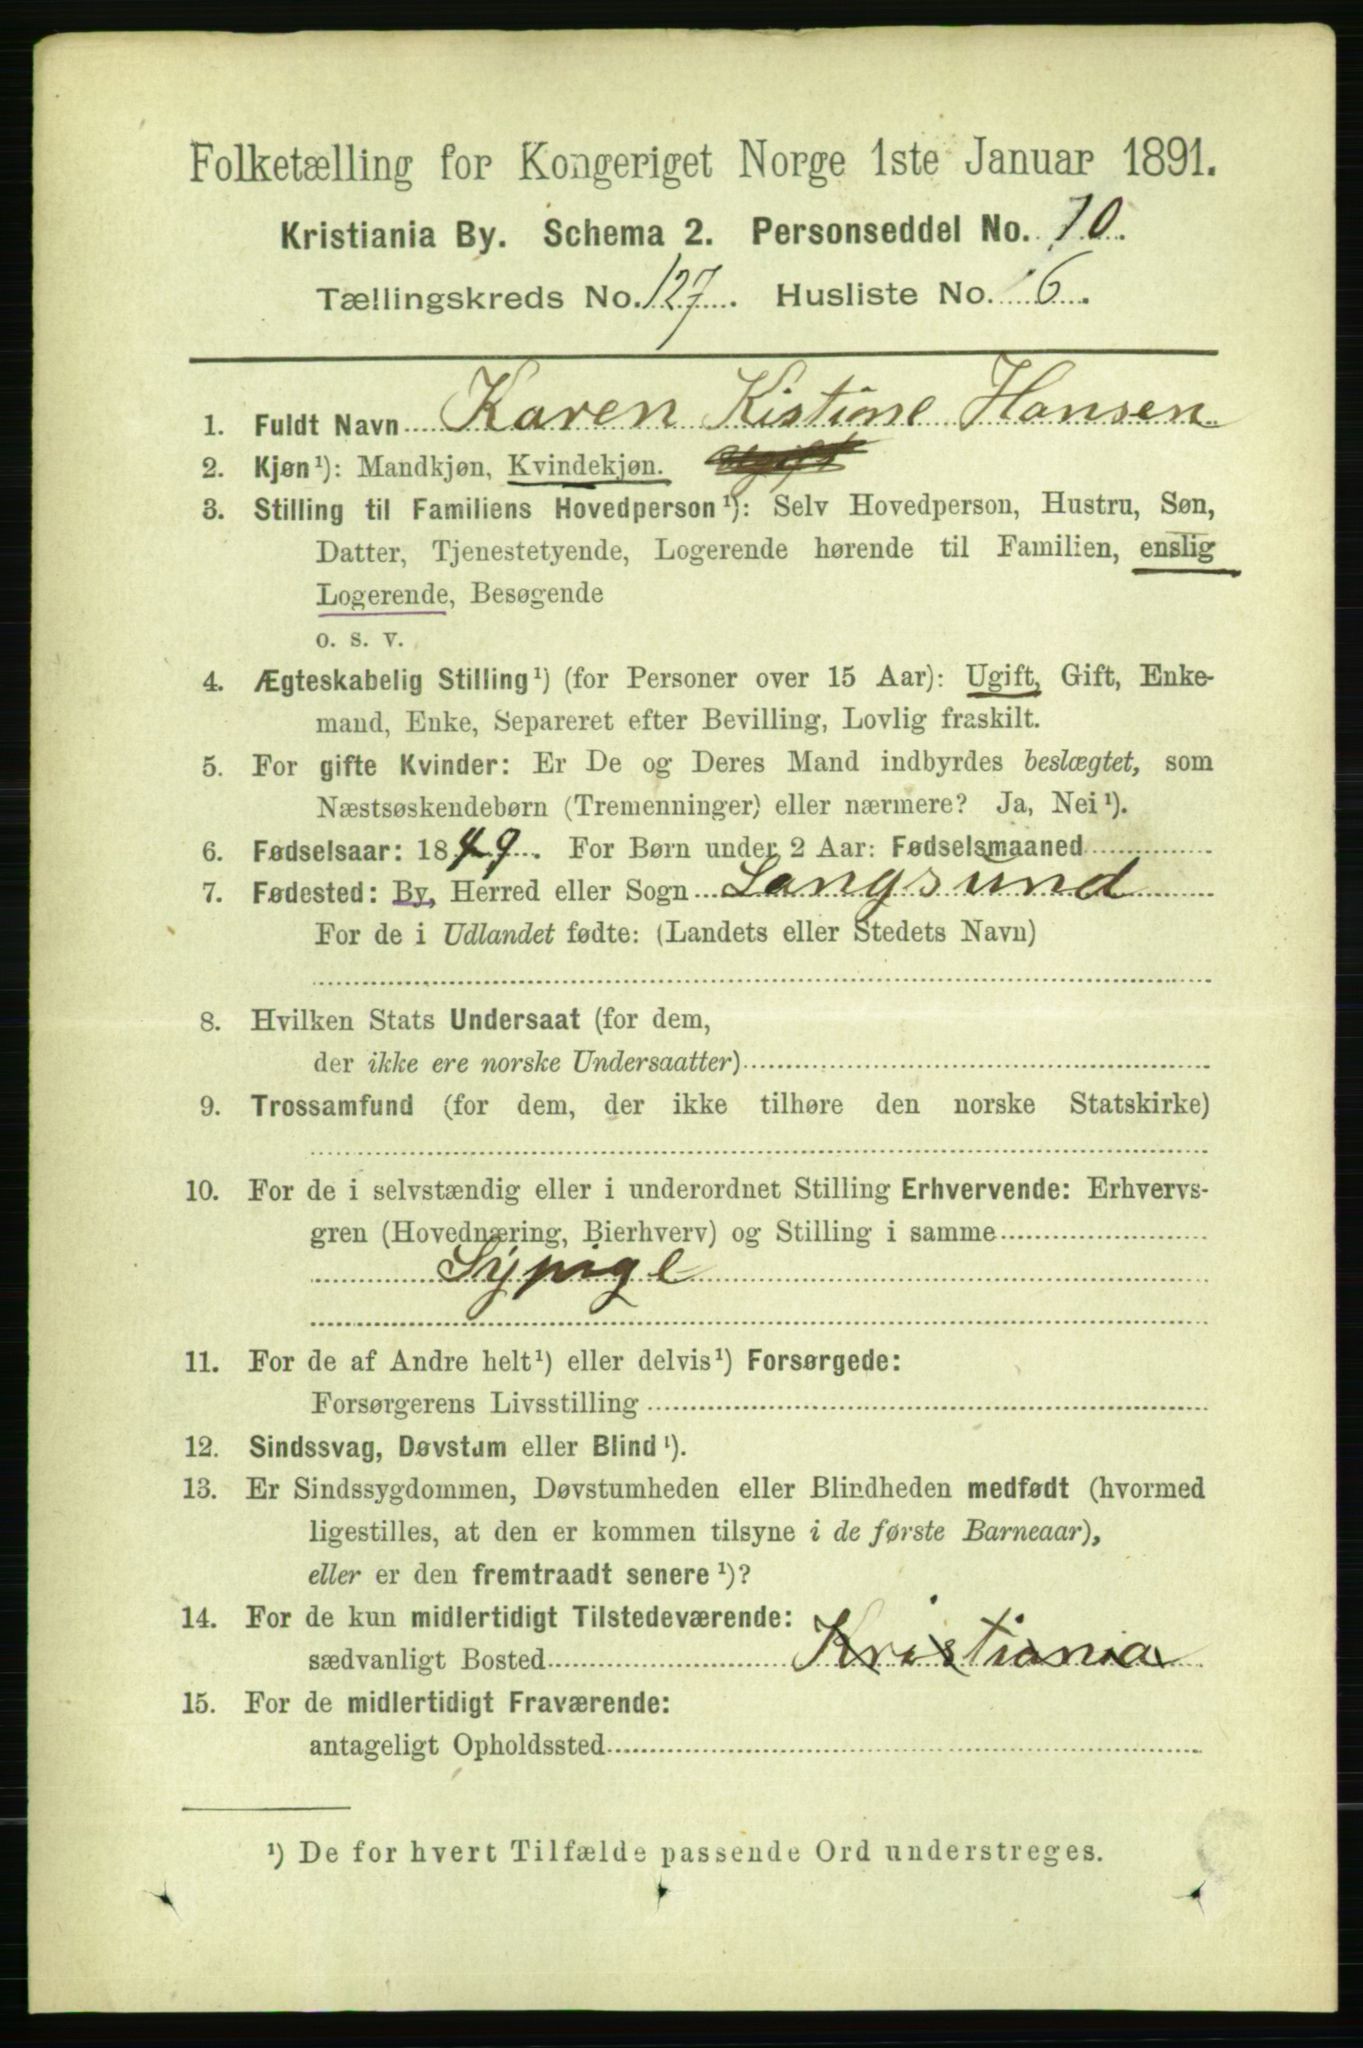 Folketælling for Kongeriget Norge 1ste Januar 1891.
Kristiania By. Schema 2. Personseddel No. 10.
Tællingskreds No. 127. Husliste No. 6.
1. Fuldt Navn Karen Kistine Hansen
2. Kjøn¹): Mandkjøn, Kvindekjøn. Ugift
3. Stilling til Familiens Hovedperson¹): Selv Hovedperson, Hustru, Søn,
Datter, Tjenestetyende, Logerende hørende til Familien, enslig
Logerende, Besøgende
o. s. v.
4. Ægteskabelig Stilling¹) (for Personer over 15 Aar): Ugift, Gift, Enke-
mand, Enke, Separeret efter Bevilling, Lovlig fraskilt.
5. For gifte Kvinder: Er De og Deres Mand indbyrdes beslægtet, som
Næstsøskendebørn (Tremenninger) eller nærmere? Ja, Nei¹).
6. Fødselsaar: 1849. For Børn under 2 Aar: Fødselsmaaned
7. Fødested: By, Herred eller Sogn Langsund
For de i Udlandet fødte: (Landets eller Stedets Navn)
8. Hvilken Stats Undersaat (for dem,
der ikke ere norske Undersaatter)
9. Trossamfund (for dem, der ikke tilhøre den norske Statskirke)
10. For de i selvstændig eller i underordnet Stilling Erhvervende: Erhvervs-
gren (Hovednæring, Bierhverv) og Stilling i samme
Sypige
11. For de af Andre helt¹) eller delvis¹) Forsørgede:
Forsørgerens Livsstilling
12. Sindssvag, Døvstum eller Blind¹).
13. Er Sindssygdommen, Døvstumheden eller Blindheden medfødt (hvormed
ligestilles, at den er kommen tilsyne i de første Barneaar),
eller er den fremtraadt senere¹)?
14. For de kun midlertidigt Tilstedeværende:
sædvanligt Bosted Kristiania
15. For de midlertidigt Fraværende:
antageligt Opholdssted
¹) De for hvert Tilfælde passende Ord understreges.